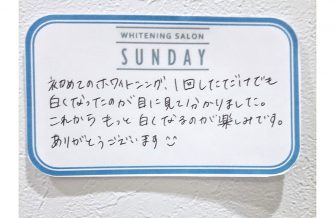 WHITENING SALON
SUNDAY
初めてのホワイトニング、1回しただけでも
白くなったのが目に見て分かりました。
これから もっと 白くなるのが 楽しみです。
ありがとうございます